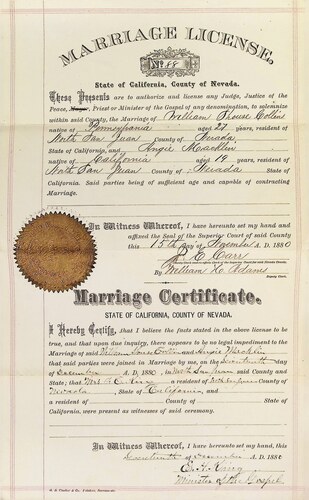 MARRIAGE LICENSE,
No. 88
State of California, County of Nevada.
These Presents are to authorize and license any Judge, Justice of the
Peace, Mayor, Priest or Minister of the Gospel of any denomination, to solemnize
within said County, the Marriage of William House Collins
native of Pennsylvania aged 27 years, resident of
North San Juan County of Nevada
State of California, and Angie
native of California aged 19 years, resident of
North San Juan County of Nevada State of
California. Said parties being of sufficient age and capable of contracting
Marriage.
In Witness Whereof, I have hereunto set my hand and
affixed the Seal of the Superior Court of said County
this 15th day of November A. D. 1880
J. E. Carr
By William H. Adams
Deputy Clerk.
Marriage Certificate.
STATE OF CALIFORNIA, COUNTY OF NEVADA.
I Hereby Certify, that I believe the facts stated in the above license to be
true, and that upon due inquiry, there appears to be no legal impediment to the
Marriage of said William House Collins and Angie
that said parties were joined in Marriage by me, on the day
of December A. D. 1880, in North San Juan said County and
State; that Mrs a resident of County of
Nevada, State of California and
a resident of County of State of
California, were present as witnesses of said ceremony.
In Witness Whereof, I have hereunto set my hand, this
of December A. D. 1880
E. H. King
Minister of the Gospel